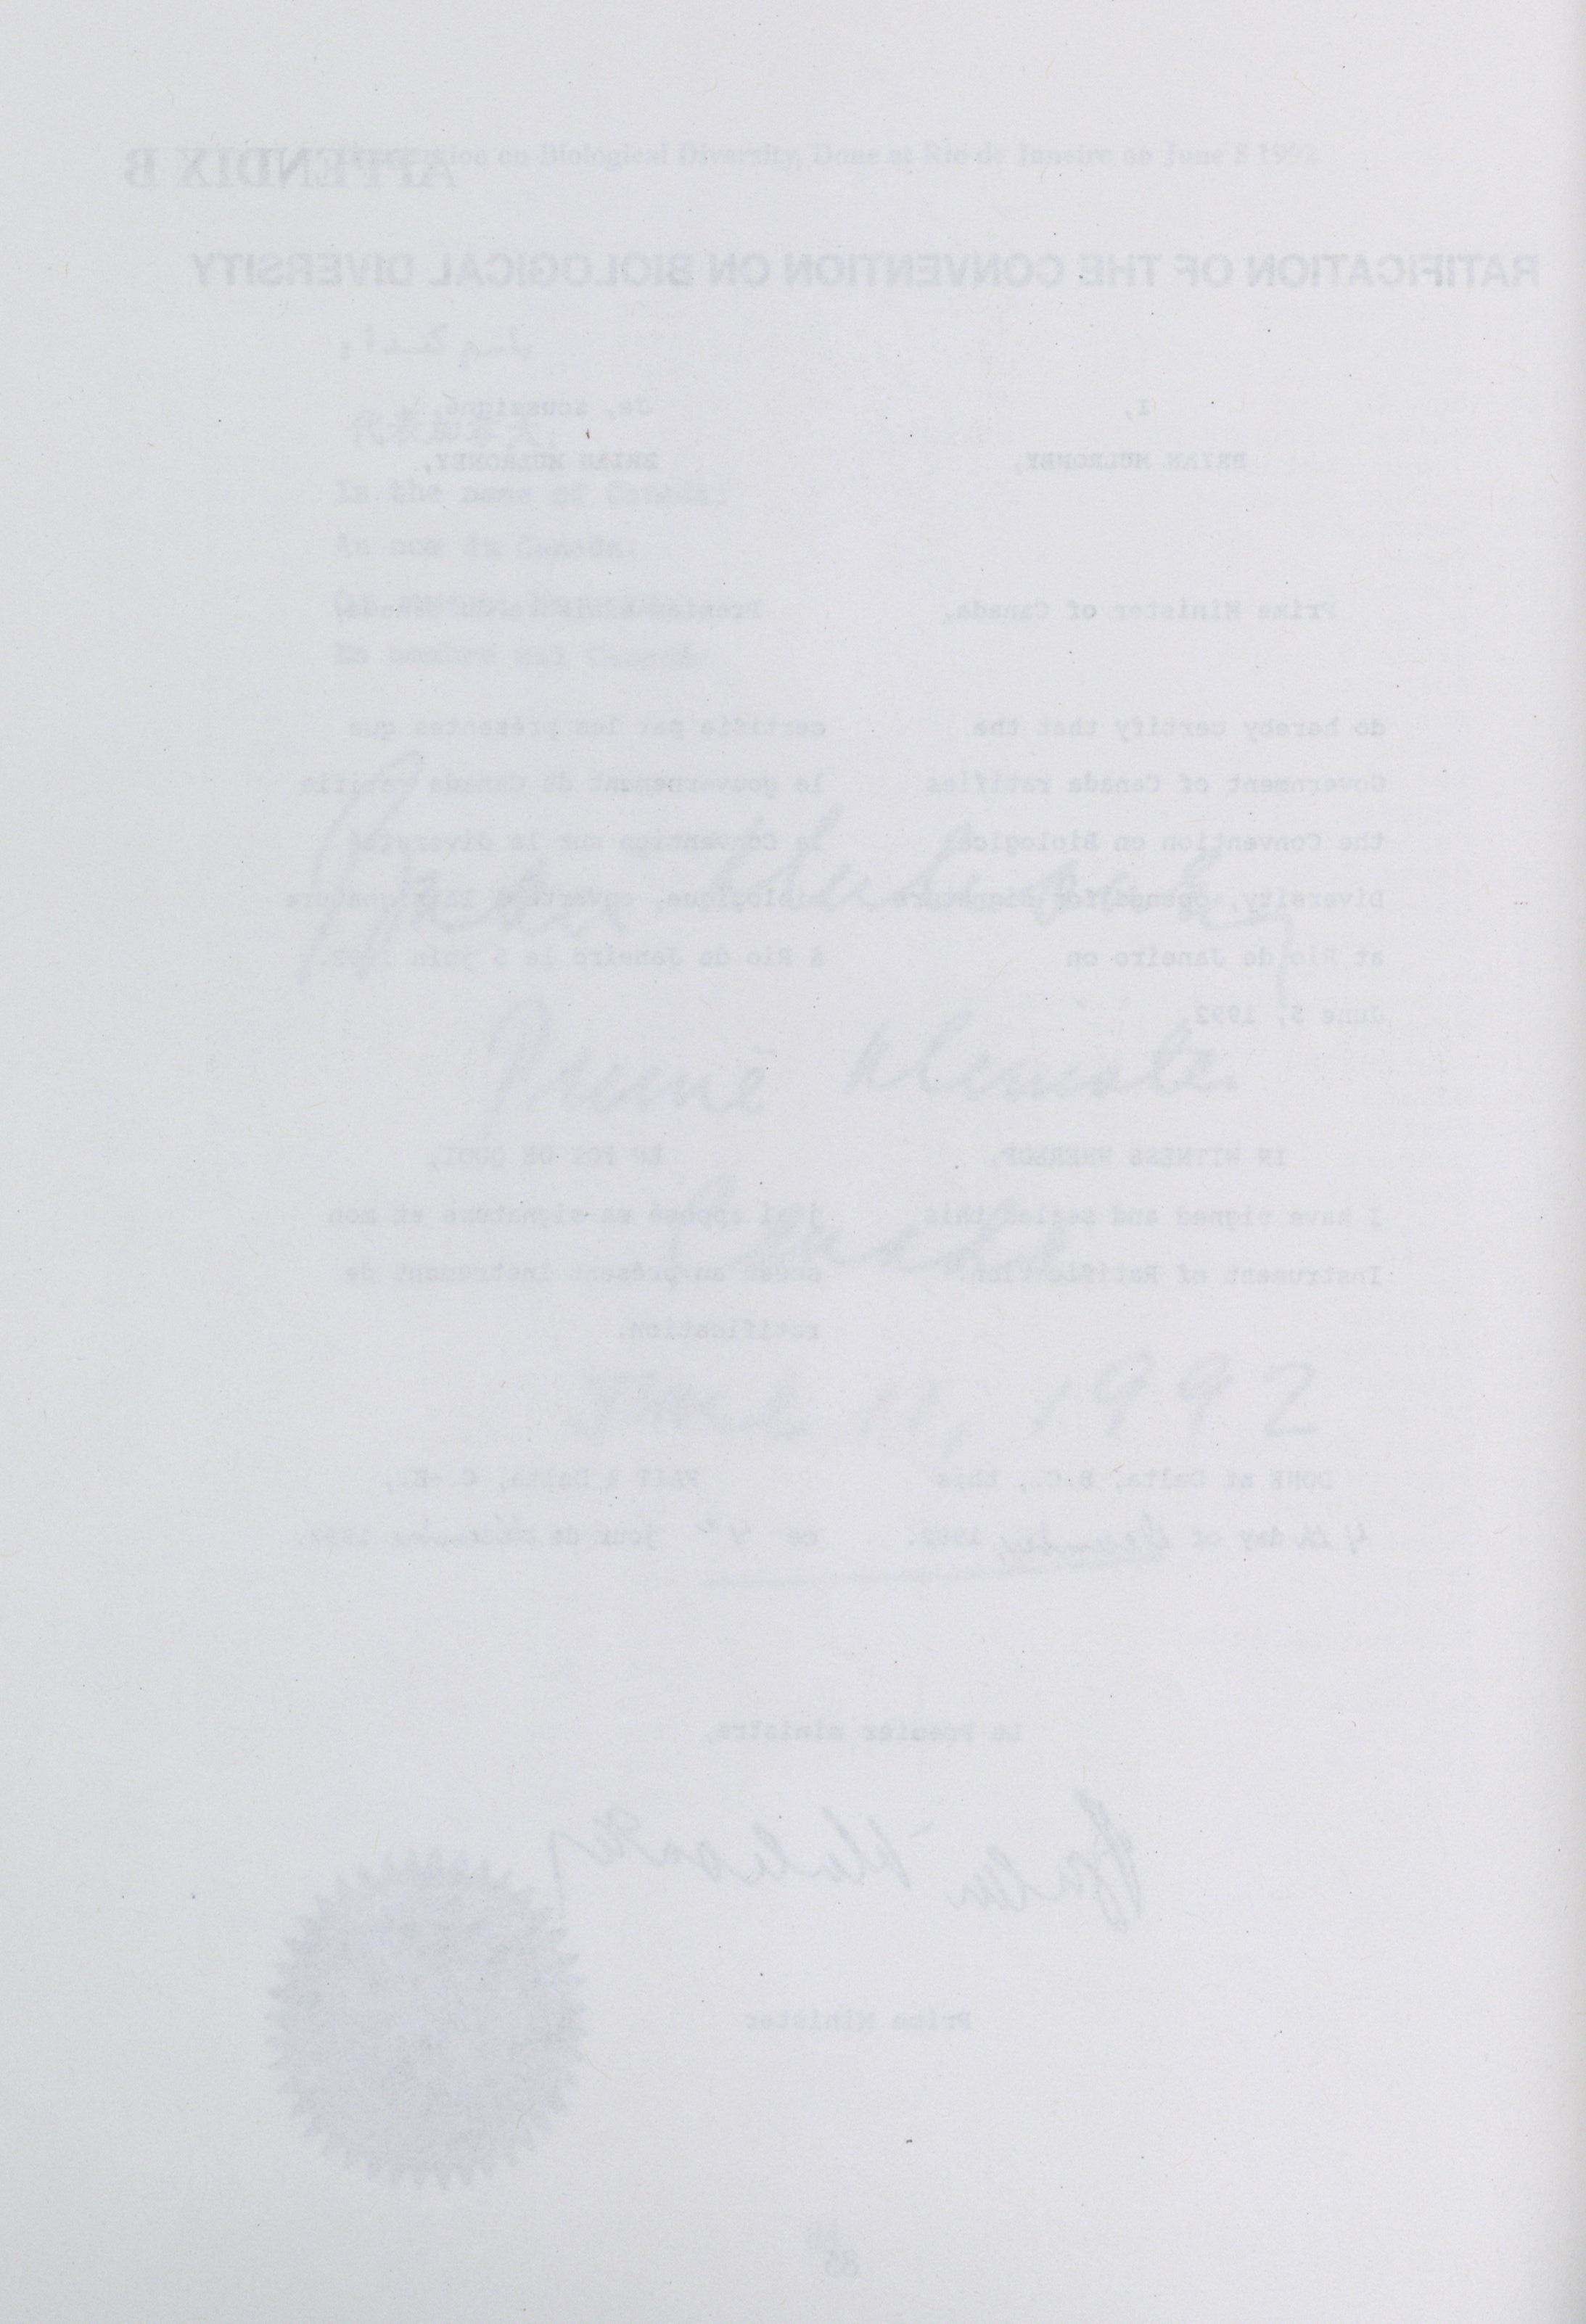 APPENDIX B
on Biological Diversity, Done at Rio de Janeiro on June 5 1992
RATIFICATION OF THE CONVENTION ON BIOLOGICAL DIVERSITY
I,
BRIAN MULRONEY,
Prime Minister of Canada,
do hereby certify that the
Government of Canada ratifies
the Convention on Biological
Diversity, opened for signature
at Rio de Janeiro on
June 5, 1992.
IN WITNESS WHEREOF,
I have signed and sealed this
Instrument of Ratification.
DONE at Delta, B.C., this
4th day of December, 1992.
Je, soussigné,
BRIAN MULRONEY,
Premier ministre du Canada
certifie par les présentes que
le gouvernement du Canada ratifie
la Convention sur la diversité
biologique, ouverte à la signature
à Rio de Janeiro le 5 juin 1992.
EN FOI DE QUOI,
j'ai apposé ma signature et mon
sceau au présent instrument de
ratification.
FAIT à Delta, C.-B.,
ce 4 jour de 1992.
代表加拿大:
In the name of Canada:
Au nom du Canada:
En nombre del Canadá:
Brian Mulroney
Prime Minister
Canada
June 11, 1992
Le Premier ministre,
Brian Mulroney
Prime Minister
85